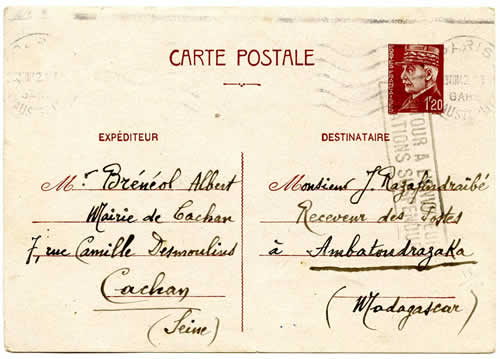 CARTE POSTALE
1F20
EXPÉDITEUR
Mr Brénéol Albert
Mairie de Cachan
7, rue Camille Desmoulins
Cachan
(Seine)
DESTINATAIRE
Monsieur J. Razafindraibé
Receveur des Postes
à Ambatondrazaka
(Madagascar)
RETOUR A L'ENVOYEUR
RELATIONS SUSPENDUES
PARIS
GARE